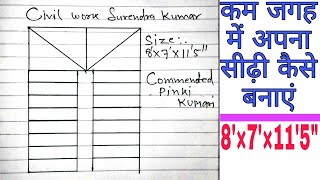 Civil work Surendra Kumar
Size:-
8'x7'x11'5"
Commended
Pinki
Kumari
कम जगह
में अपना
सीढ़ी कैसे
बनाएं
8'x7'x11'5"